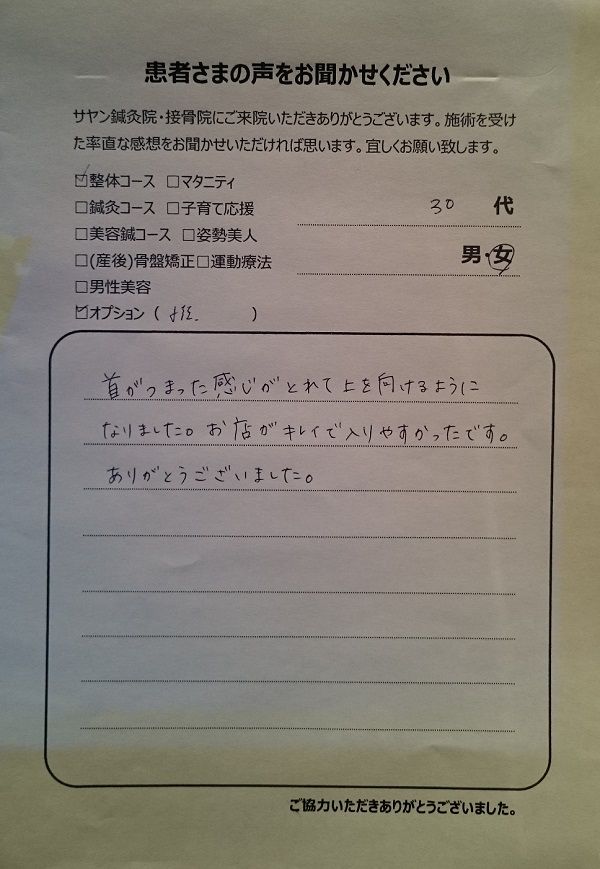 患者さまの声をお聞かせください
サヤン鍼灸院・接骨院にご来院いただきありがとうございます。施術を受け
た率直な感想をお聞かせいただければ思います。宜しくお願い致します。
☑整体コース □マタニティ
□鍼灸コース □子育て応援
□美容鍼コース □姿勢美人
□(産後)骨盤矯正□運動療法
□男性美容
☑オプション ( )
30 代
男・女
首がつまった感じがとれて上を向けるように
なりました。お店がキレイで入りやすかったです。
ありがとうございました。
ご協力いただきありがとうございました。